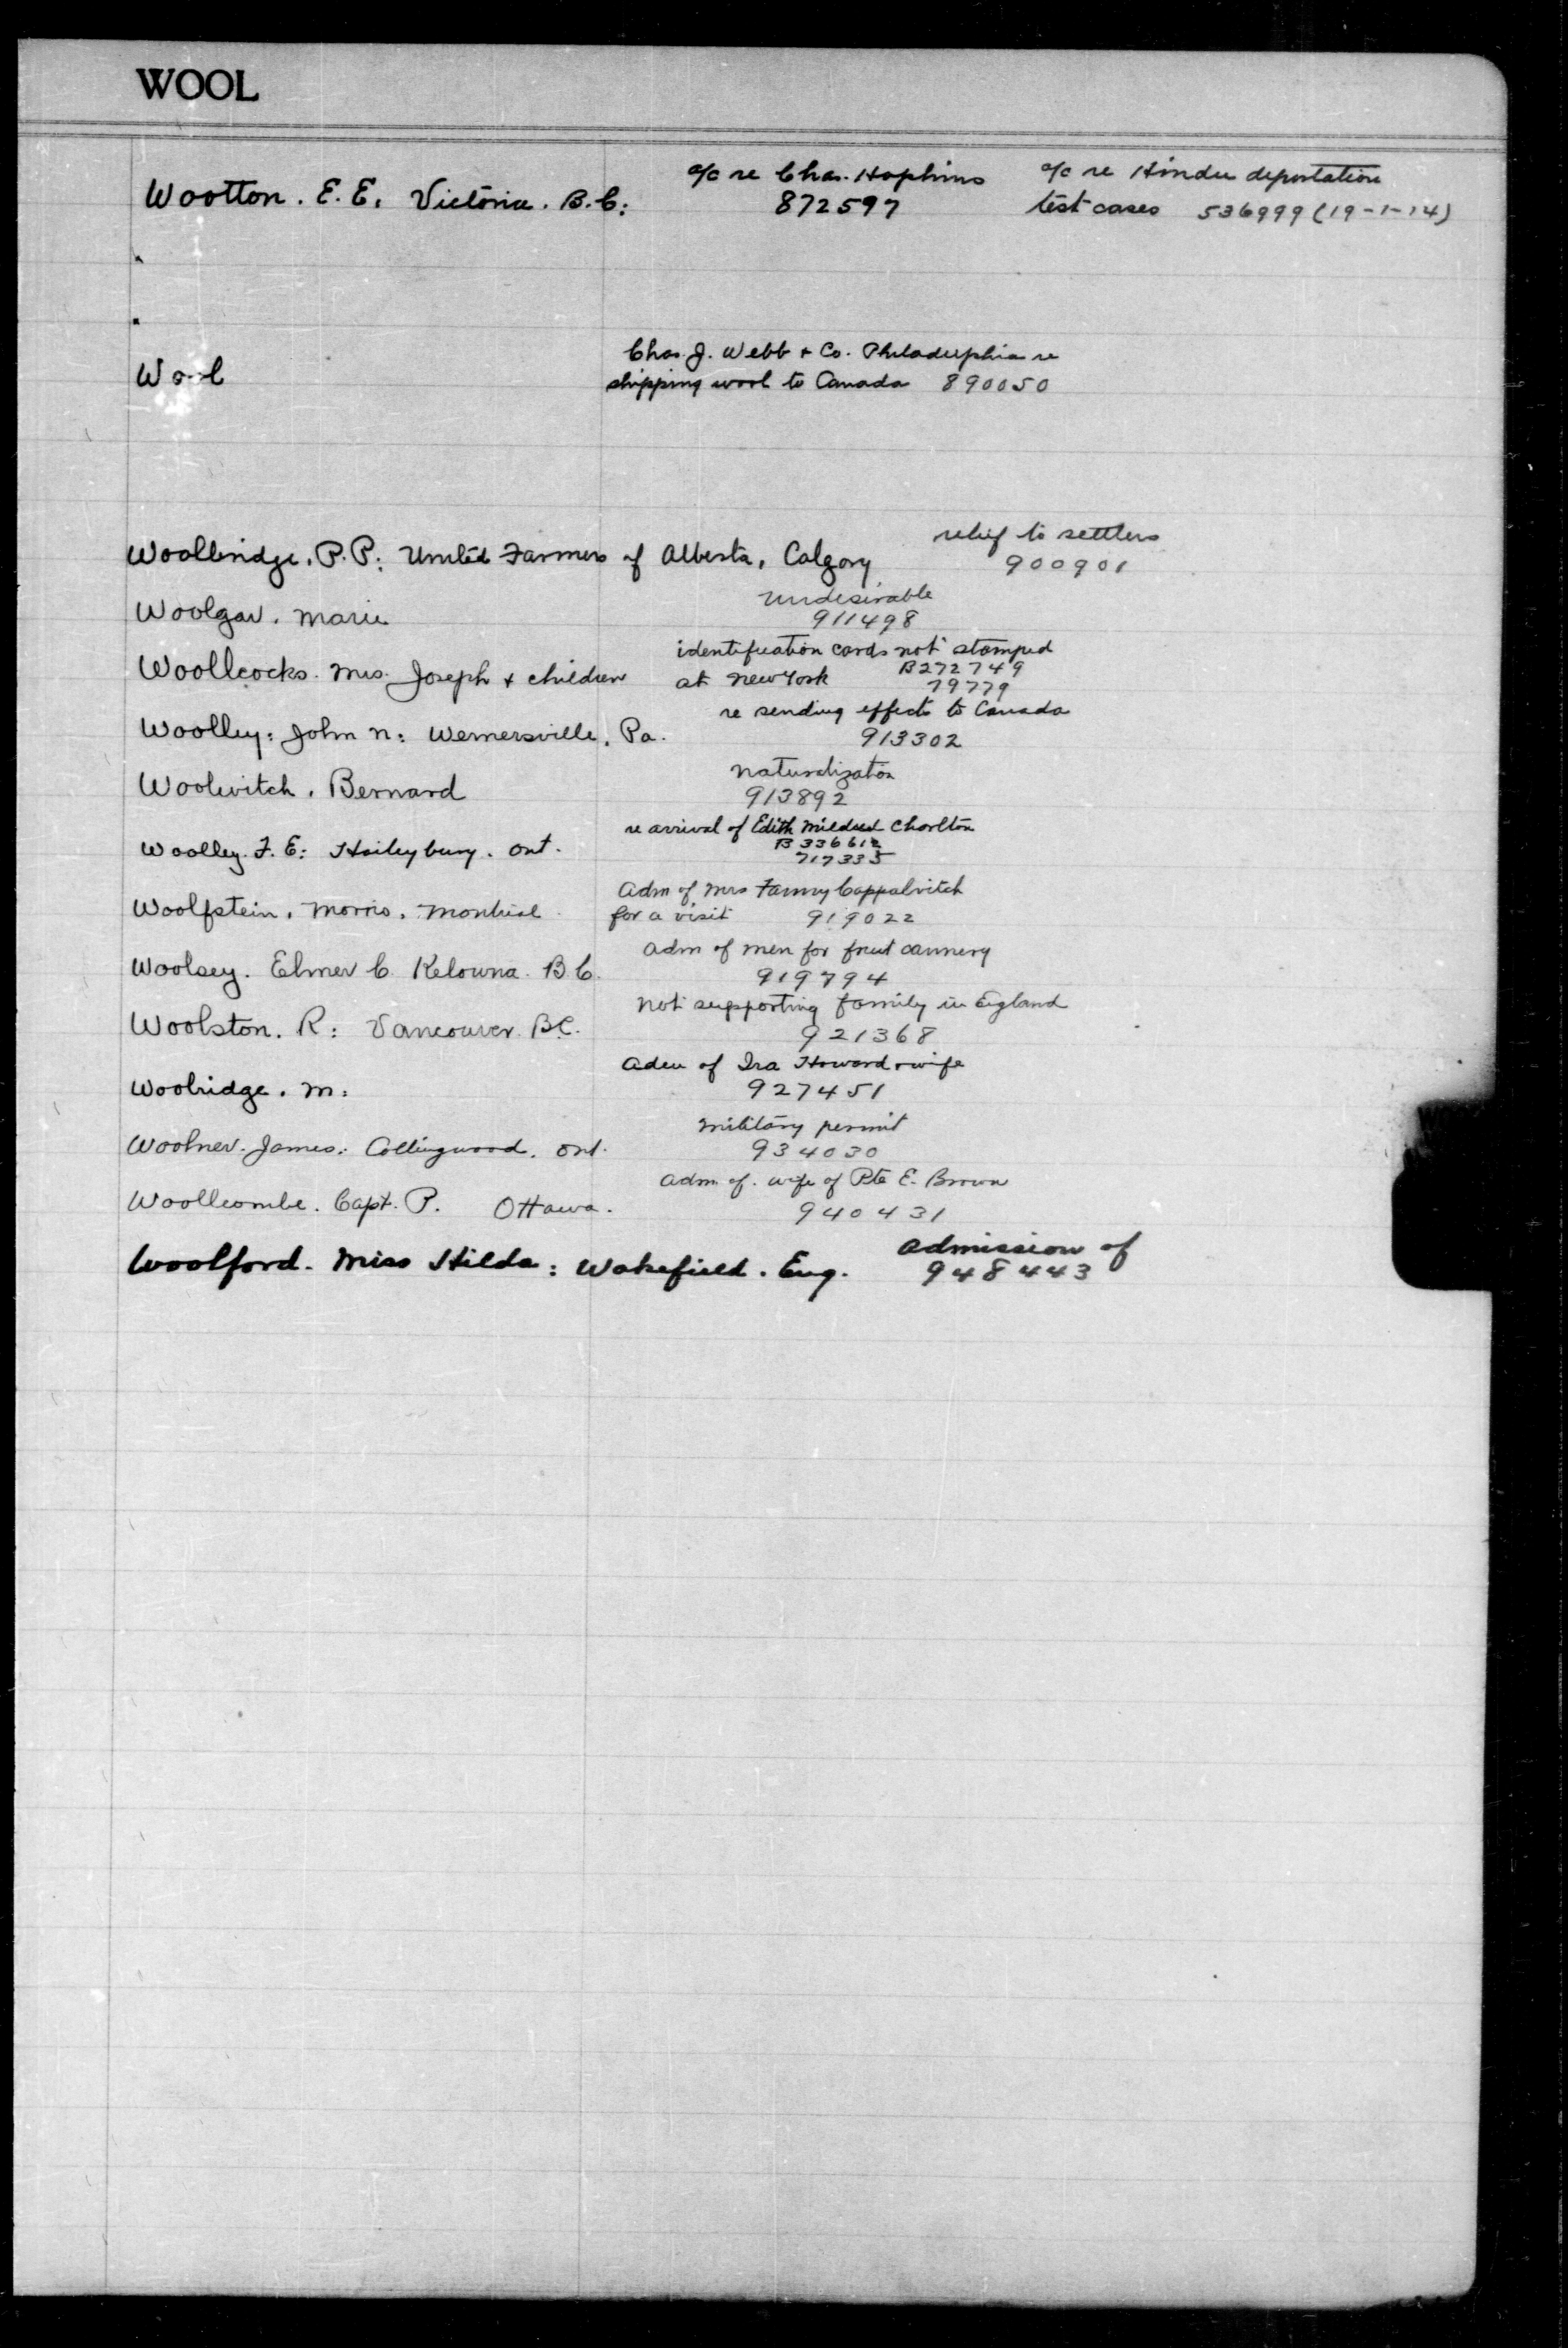 WOOL
a/c re Chas. Hopkins a/c re Hindu deportation
Wootton. E. E. Victoria. B.C: 872597 test cases 536999 (19-1-14)
Chas. J. Webb + Co. Philadelphia re
Wool shipping wool to Canada 890050
relief to settlers
Woolbridge. P.P: United Farmers of Alberta, Calgary 900901
undesirable
Woolgar. Marie 911498
identification cards not stamped
Woollcocks. Mrs. Joseph + children at New York B272749
79779
re sending effects to Canada
Woolley: John N: Wernersville, Pa. 913302
Naturalization
Woolevitch. Bernard 913892
re arrival of Edith Mildred Chorlton
Woolley. F. E: Haileybury. Ont. B 336612
717335
Adm of Mrs Fanny Cappalvitch
Woolfstein. Morris. Montreal for a visit 919022
Adm of men for fruit cannery
Woolsey. Elmer C. Kelowna. B.C. 919794
Not supporting family in England
Woolston. R: Vancouver. B.C. 921368
Adm of Ira Howard + wife
Woolridge. M: 927451
Military permit
Woolner. James: Collingwood. Ont. 934030
Adm. of. wife of Pte E. Brown
Woollcombe. Capt. P. Ottawa. 940431
Admission of
Woolford. Miss Hilda: Wakefield. Eng. 948443